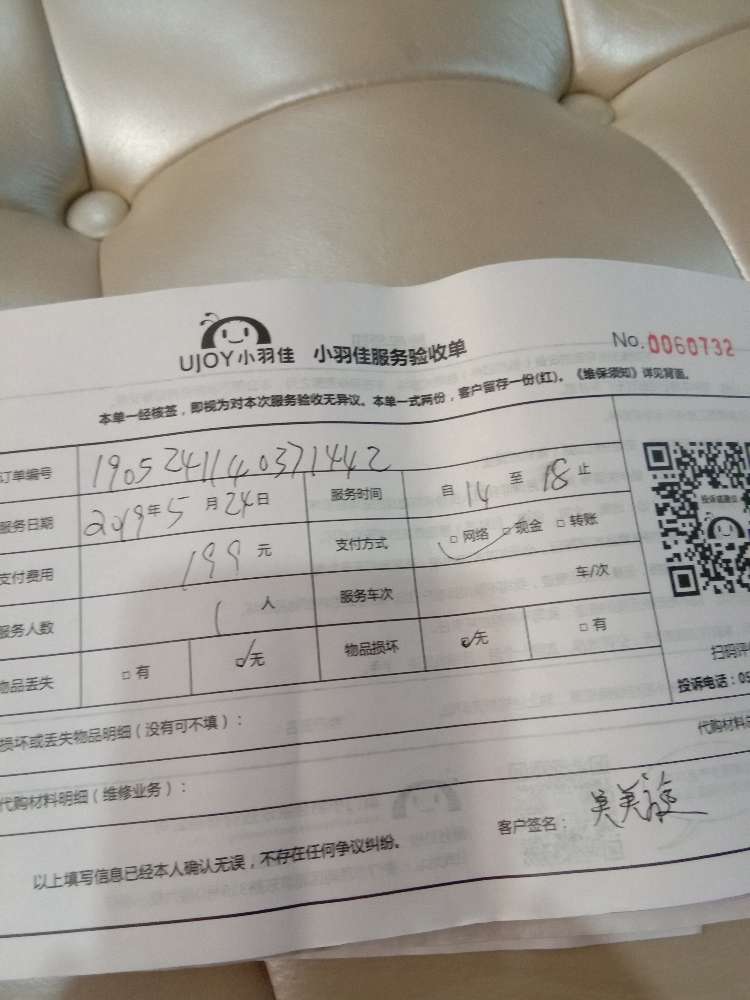 UJOY小羽佳 小羽佳服务验收单 No.0060732
本单一经核签，即视为对本次服务验收无异议。本单一式两份，客户留存一份(红)。《维保须知》详见背面。
订单编号 1905241140371442
服务日期 2019年5月24日 服务时间 自14至18止
支付费用 199元 支付方式 □网络 □现金 □转账
服务人数 1人 服务车次 车/次
物品丢失 □有 ☑无 物品损坏 ☑无 □有
投诉或建议
扫码评
投诉电话：05
损坏或丢失物品明细（没有可不填）：
代购材料
代购材料明细（维修业务）：
客户签名：吴美
以上填写信息已经本人确认无误，不存在任何争议纠纷。